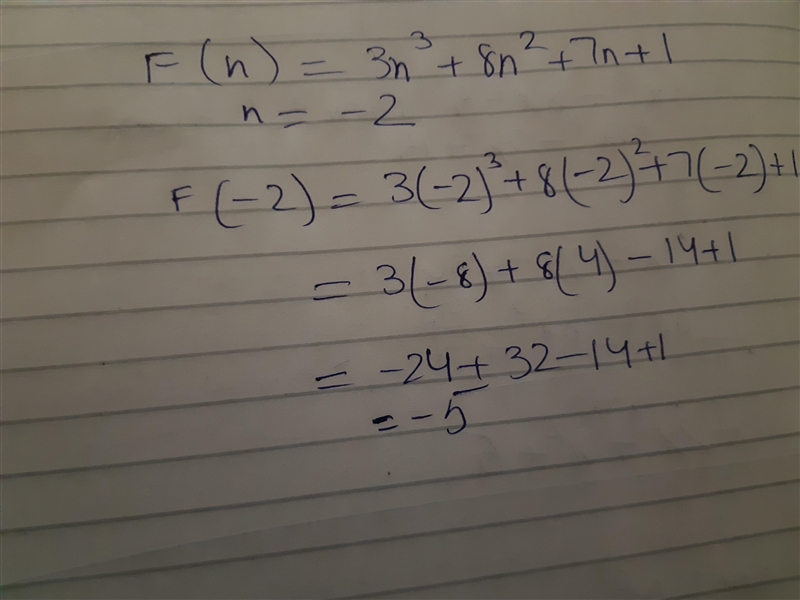 F(n) = 3n³ + 8n² + 7n + 1
n = -2
F(-2) = 3(-2)³ + 8(-2)² + 7(-2) + 1
= 3(-8) + 8(4) - 14 + 1
= -24 + 32 - 14 + 1
= -5